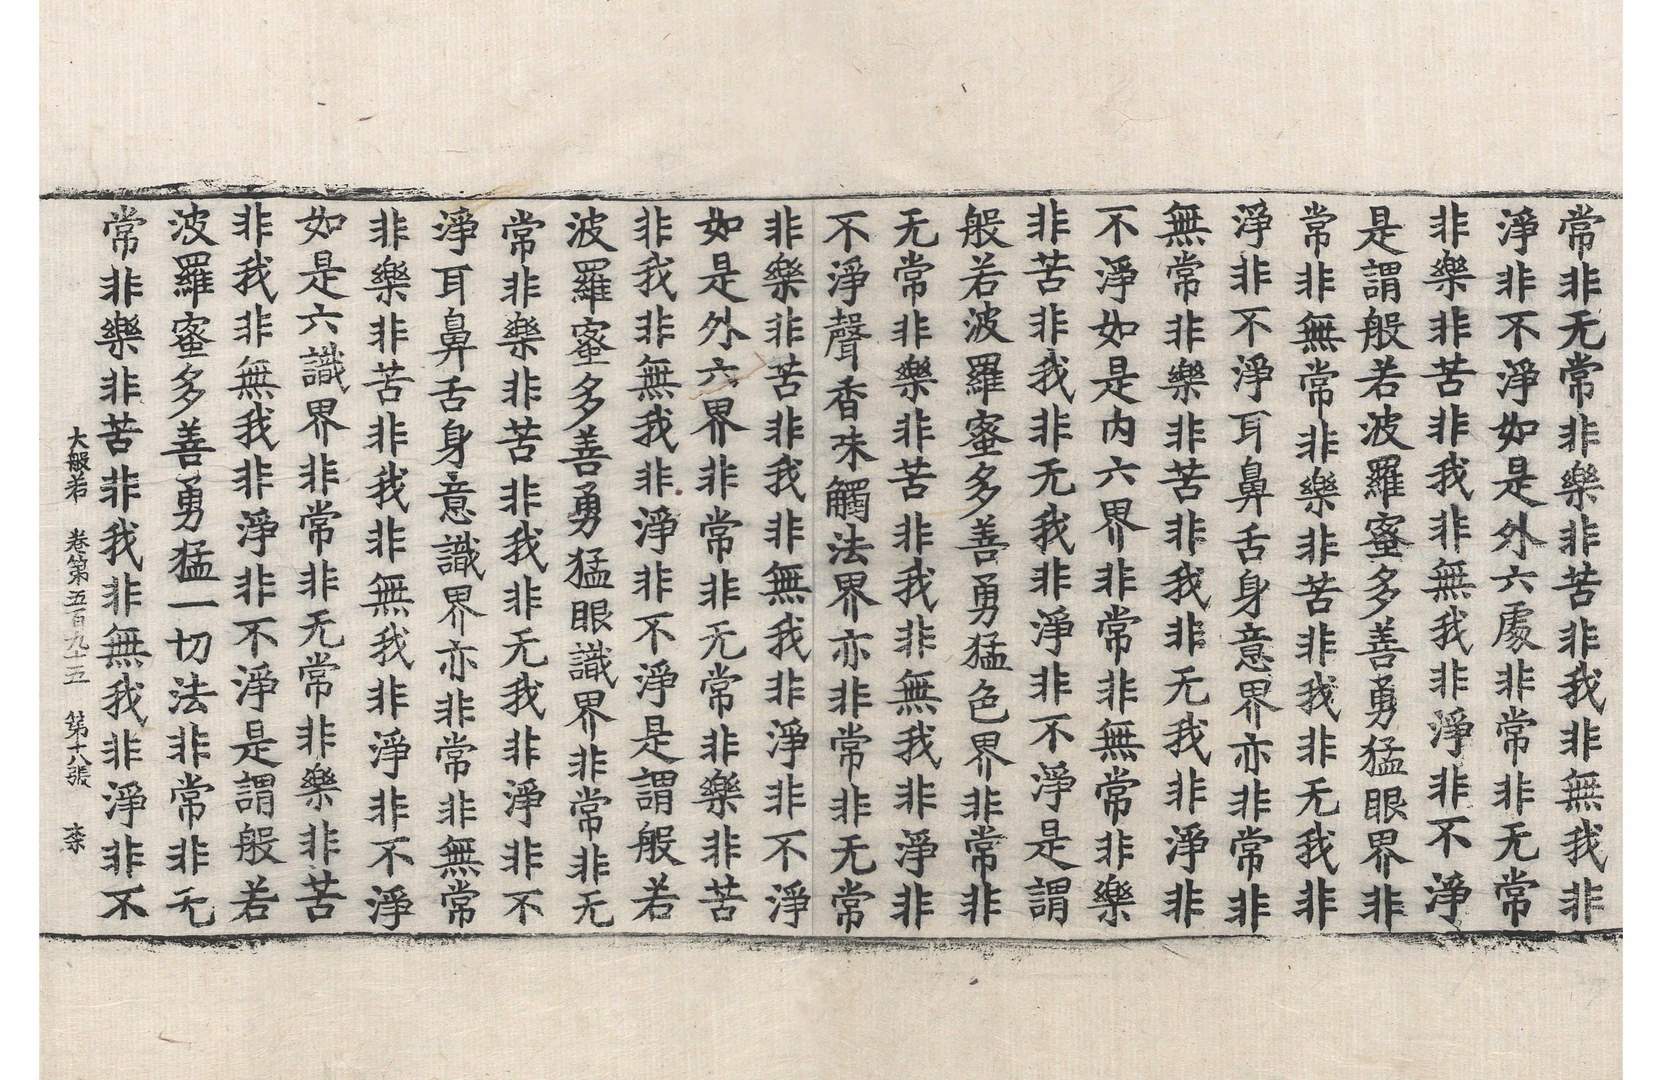 常非无常非樂非苦非我非無我非
淨非不淨如是外六處非常非无常
非樂非苦非我非無我非淨非不淨
是謂般若波羅蜜多善勇猛眼界非
常非無常非樂非苦非我非无我非
淨非不淨耳鼻舌身意界亦非常非
無常非樂非苦非我非无我非淨非
不淨如是内六界非常非無常非樂
非苦非我非无我非淨非不淨是謂
般若波羅蜜多善勇猛色界非常非
无常非樂非苦非我非無我非淨非
不淨聲香味觸法界亦非常非无常
非樂非苦非我非無我非淨非不淨
如是外六界非常非无常非樂非苦
非我非無我非淨非不淨是謂般若
波羅蜜多善勇猛眼識界非常非无
常非樂非苦非我非无我非淨非不
淨耳鼻舌身意識界亦非常非無常
非樂非苦非我非無我非淨非不淨
如是六識界非常非无常非樂非苦
非我非無我非淨非不淨是謂般若
波羅蜜多善勇猛一切法非常非无
常非樂非苦非我非無我非淨非不
大般若 卷第五百九十五 第十八張 柰